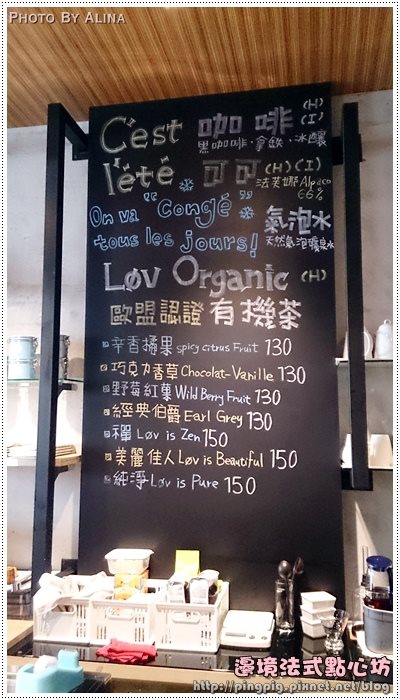 PHOTO BY ALINA
C'est 咖啡 (H) (I)
黑咖啡·拿鐵·冰釀
l'été 可可 (H)(I)
法芙娜 Alpaco 66%
On va "congé" 氣泡水
tous les jours! 天然氣泡礦泉水
Løv Organic (H)
歐盟認證 有機茶
辛香橘果 spicy citrus Fruit 130
巧克力香草 Chocolat-Vanille 130
野莓紅菓 Wild Berry Fruit 130
經典伯爵 Earl Grey 130
禪 Løv is Zen 150
美麗佳人 Løv is Beautiful 150
純淨 Løv is Pure 150
邊境法式點心坊
http://pingpig.pixnet.net/blog